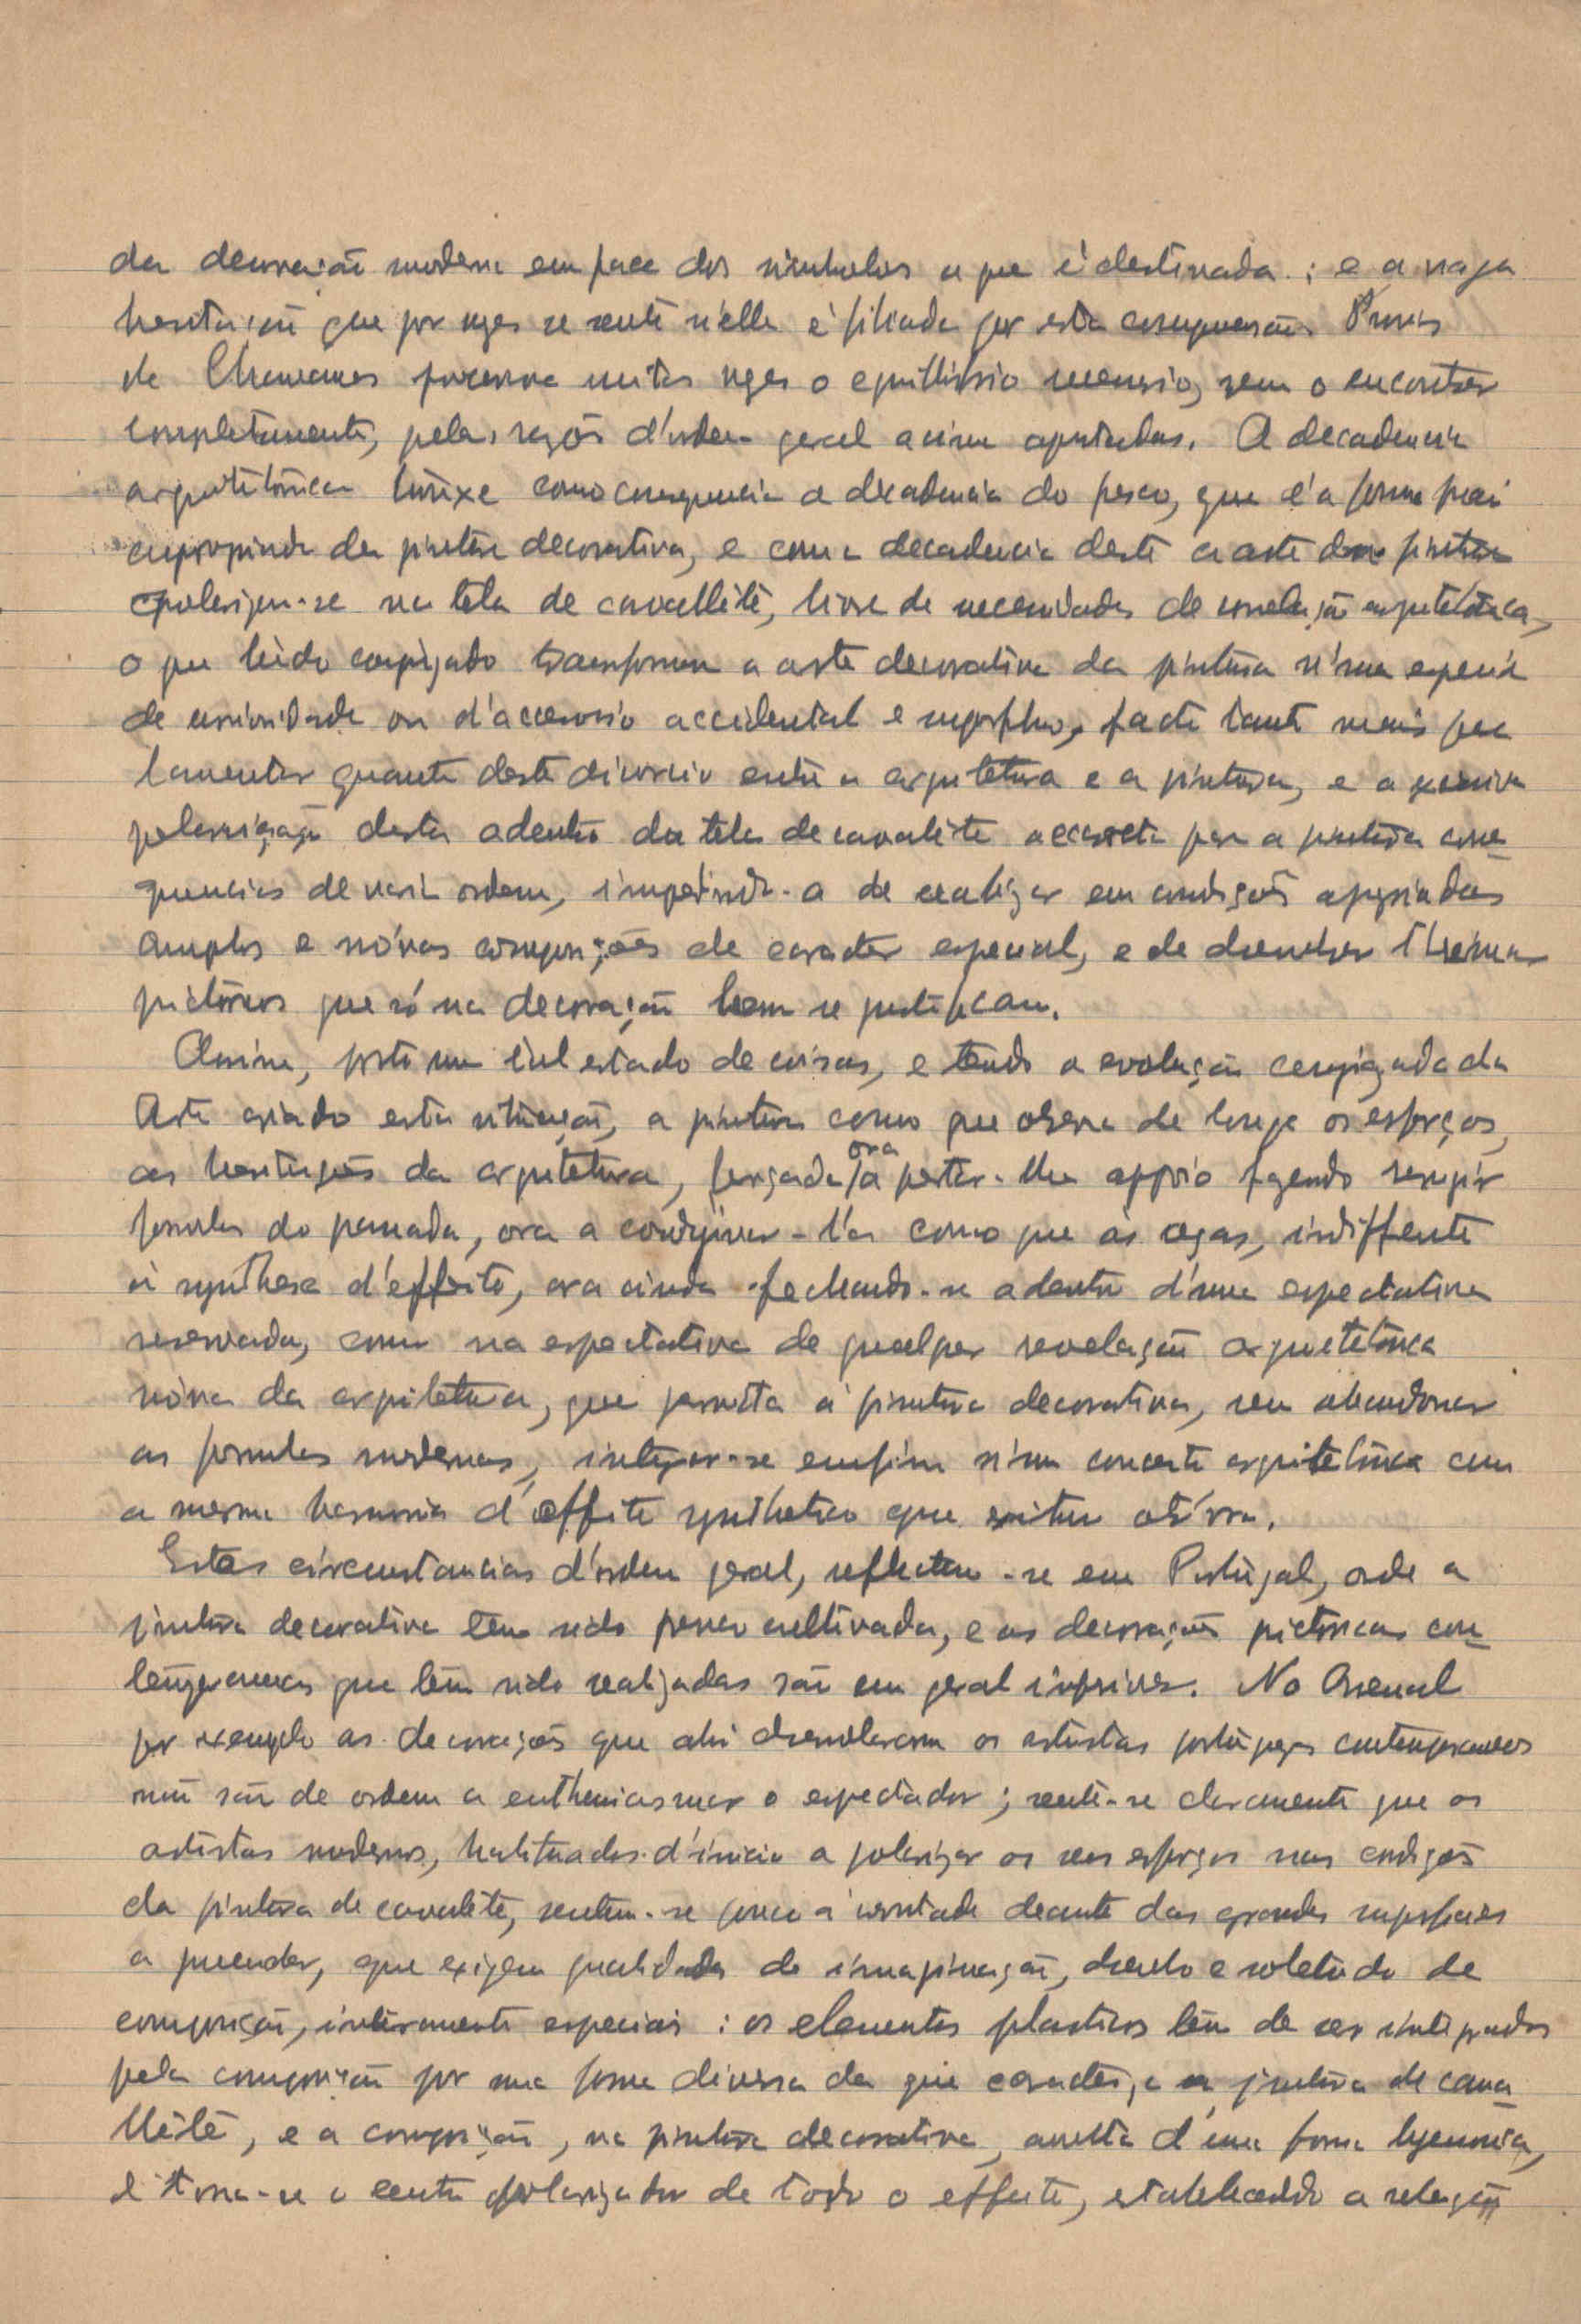 da decoração moderna em face dos simbolos a que é destinada : e a vaga
hesitação que por vezes se sente n'elle é filiada por esta Puvis
de Chavannes procurava muitas vezes o equillibrio necessario, sem o encontrar
completamente, pelas razões d'ordem geral acima apontadas. A decadencia
arquitetónica trouxe como consequencia a decadencia do fresco, que é a forma mais
apropriada da pintura decorativa, e com a decadencia deste a arte da pintura
polarizou-se na tela de cavallête, livre de necessidades de correlação arquitetónica,
o que tudo conjugado transformou a arte decorativa da pintura n'uma especie
de curiosidade ou d'accessorio accidental e superfluo, facto tanto mais para
lamentar quanto deste divorcio entre a arquitetura e a pintura, e a excessiva
polarização desta adentro da tela de cavalete accarreta para a pintura conse-
quencias de varia ordem, impedindo-a de realizar em condições apropriadas
amplas e nóvas composições de caracter especial, e de desenvolver themas
pictóricos que só na decoração bem se justificam.
Assim, posto um tal estado de coisas, e tendo a evolução conjugada da
Arte criado esta situação, a pintura como que observa de longe os esforços,
as hesitações da arquitetura, forçada ora a prestar-lhe appoio fazendo resurgir
formulas do passado, ora a coadjuvar-l'a como que ás cegas, indifferente
á synthese d'effeito, ora ainda fechando-se adentro d'uma espectativa
reservada, como na espectativa de qualquer revelação arquitetónica
nóva da arquitetura, que permita á pintura decorativa, sem abandonar
as formulas modernas, integrar-se emfim n'um concerto arquitetónico com
a mesma harmonia d'effeito synthetico que existiu outr'ora.
Estas circunstancias d'ordem geral, reflectem-se em Portugal, onde a
pintura decorativa tem sido pouco cultivada, e as decorações pictóricas con-
temporaneas que têm sido realizadas são em geral inferiores. No Arsenal
por exemplo as decorações que ahi desenvolveram os artistas portuguezes contemporaneos
não são de ordem a enthusiasmar o espectador ; sente-se claramente que os
artistas modernos, habituados d'inicio a polarizar os seus esforços nas condições
da pintura de cavalete, sentem-se pouco á vontade deante das grandes superficies
a preencher, que exigem qualidades de imaginação, desenho e sobretudo de
composição, inteiramente especiais : os elementos plasticos têm de ser integrados
pela composição por uma forma diversa da que caracteriza a pintura de cava-
llête, e a composição, na pintura decorativa, avulta d'uma forma hegemonica,
e torna-se o centro polarizador de todo o effeito, estabelecendo a relação